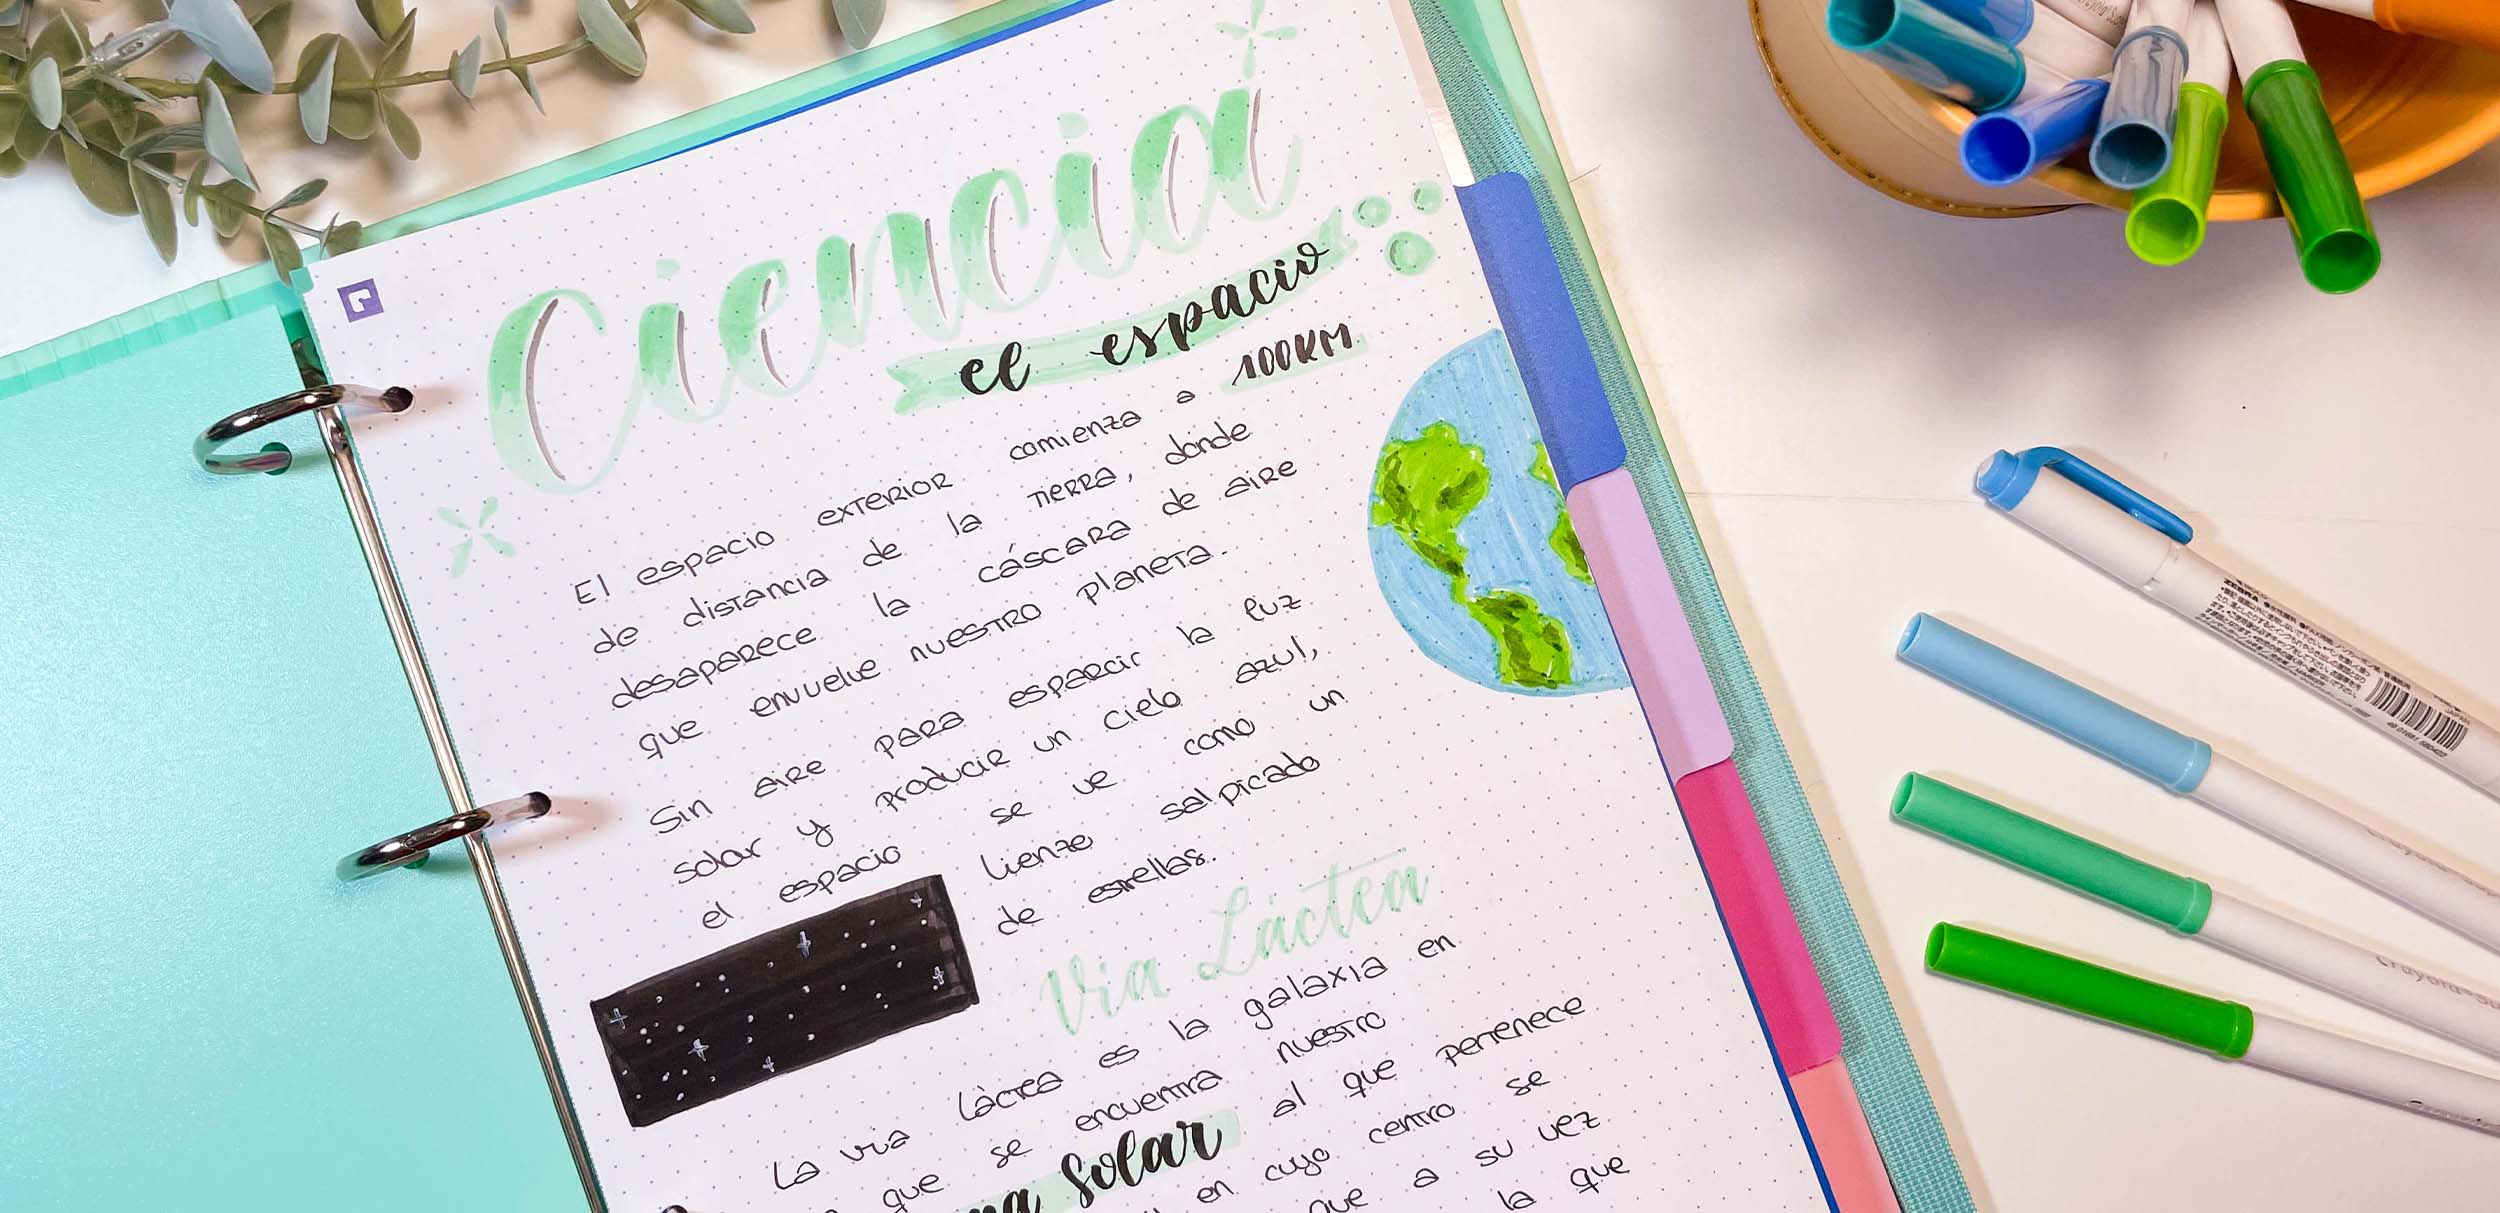 Ciencia
el espacio
El espacio exterior comienza a 100KM
de distancia de la Tierra, donde
desaparece la cáscara de aire
que envuelve nuestro planeta.
Sin aire para esparcir la luz
solar y producir un cielo azul,
el espacio se ve como un
lienzo salpicado
de estrellas.
Via Láctea
La via Láctea es la galaxia en
que se encuentra nuestro
Solar al que pertenece
en cuyo centro se
que a su vez
la que
ZEBRA
Crayola